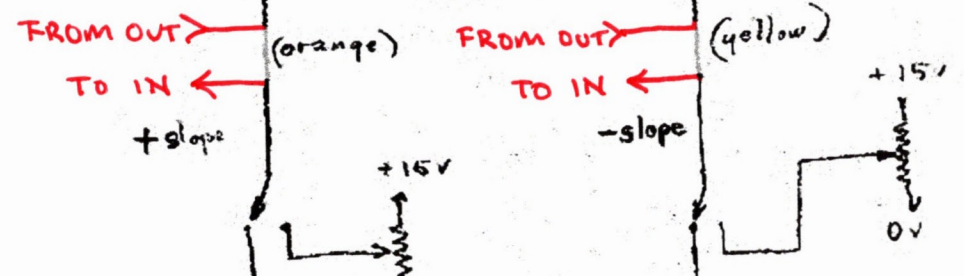 FROM OUT
(orange)
TO IN
+ slope
+ 15 V
FROM OUT
(yellow)
TO IN
- slope
+ 15 V
0 V